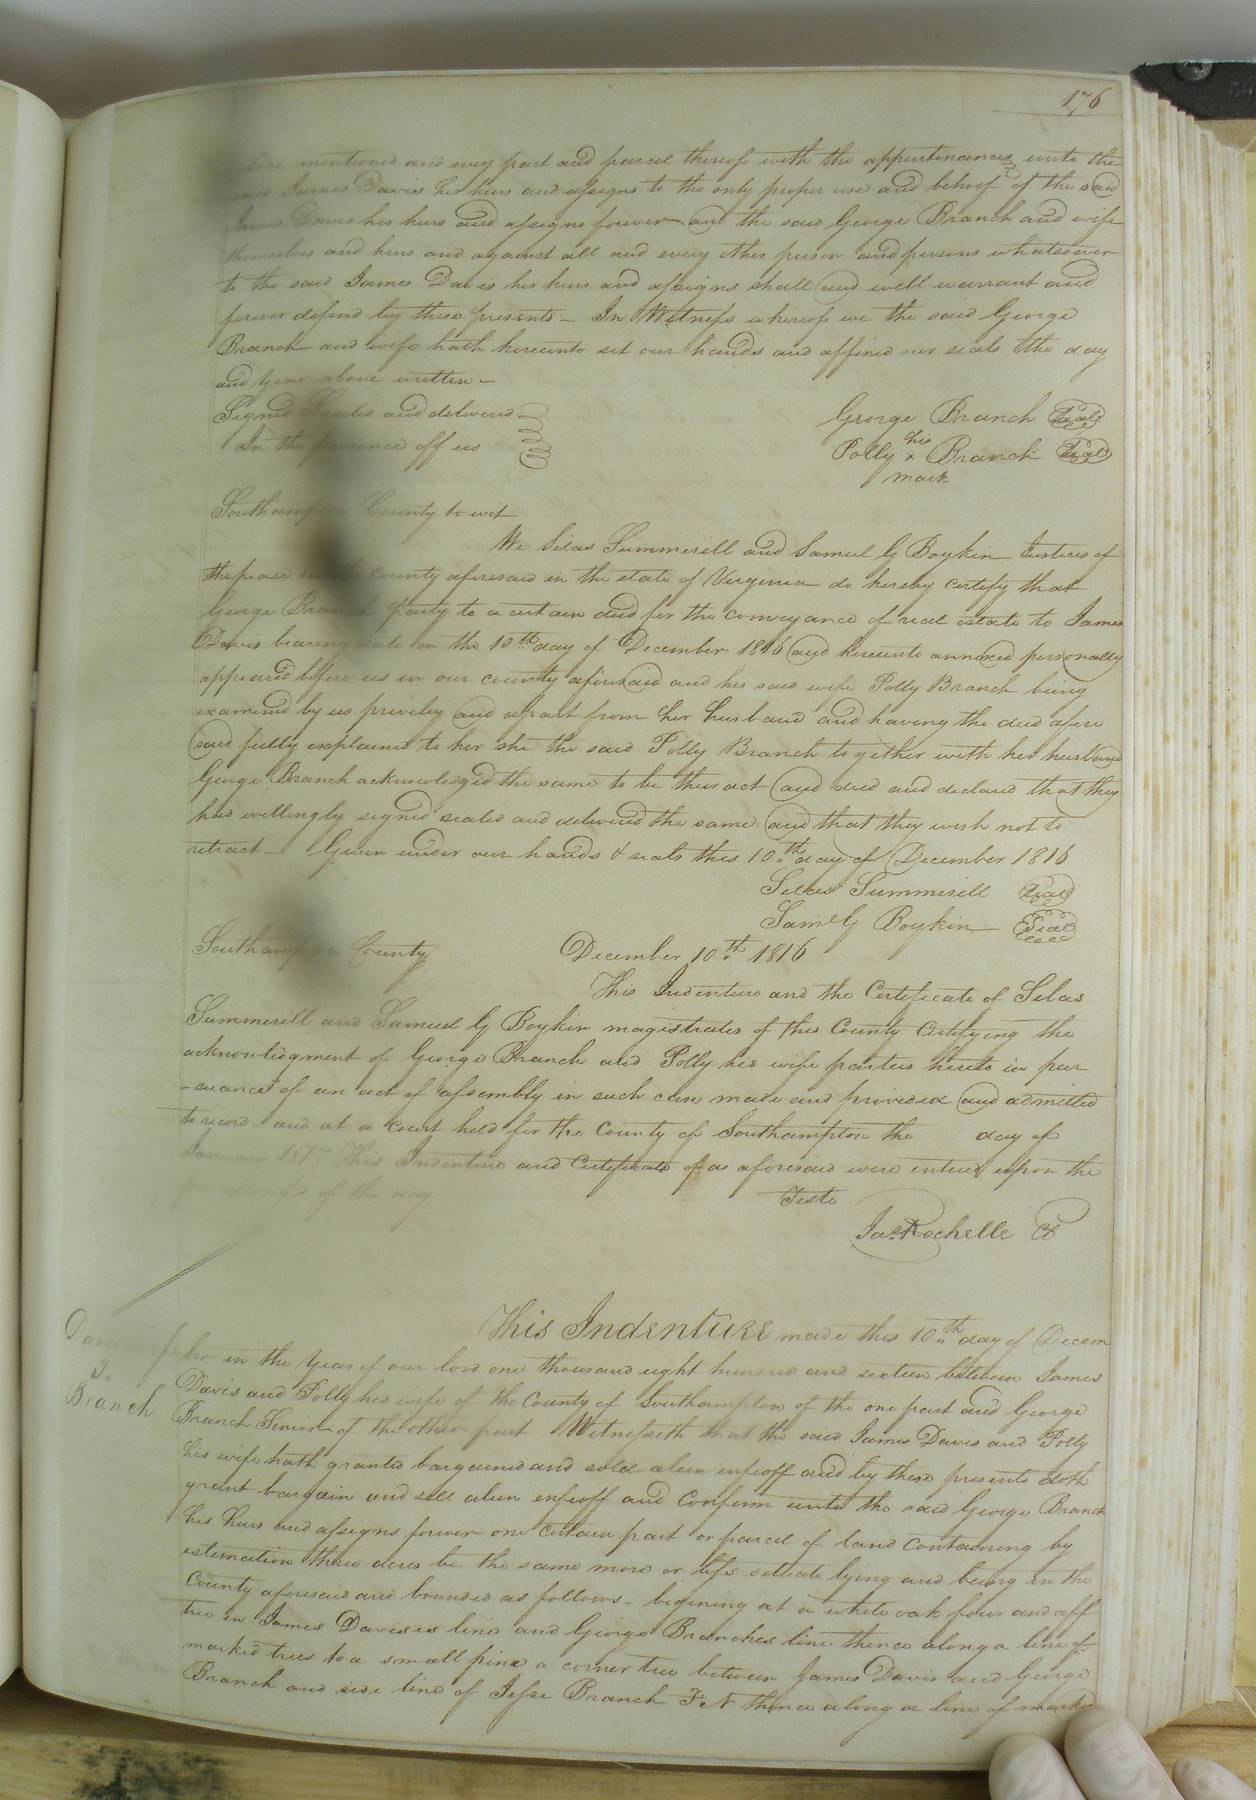 176
fore mentioned and every part and parcel thereof with the appurtenances unto the
said James Davis his heirs and assigns to the only proper use and behoof of the said
James Davis his heirs and assigns forever and the said George Branch and wife
themselves and heirs and against all and every other person and persons whatsoever
to the said James Davis his heirs and assigns shall and will warrant and
forever defend by these presents - In Witness whereof we the said George
Branch and wife hath hereunto set our hands and affixed our seals the day
and year above written -
Signed Sealed and delivered
In the presence off us
George Branch Seal
his
Polly x Branch Seal
mark
Southampton County to wit
We Silas Summerell and Samuel G Boykin Justices of
the peace in the County aforesaid in the state of Virginia do hereby certify that
George Branch party to a certain deed for the conveyance of real estate to James
Davis bearing date on the 10th day of December 1816 and hereunto annexed personally
appeared before us in our county aforesaid and his said wife Polly Branch being
examined by us privily and apart from her husband and having the deed afore
said fully explained to her she the said Polly Branch together with her husband
George Branch acknowledged the same to be their act and deed and declared that they
had willingly signed sealed and delivered the same and that they wish not to
retract - Given under our hands & seals this 10th day of December 1816
Silas Summerell Seal
Saml G Boykin Seal
Southampton County December 10th 1816
This Indenture and the Certificate of Silas
Summerill and Samuel G Boykin magistrates of this County Certifying the
acknowledgment of George Branch and Polly his wife parties hereto in pur
-suance of an act of assembly in such case made and provided and admitted
to record and at a Court held for the County of Southampton the day of
January 1817 This Indenture and Certificate of as aforesaid were entered upon the
proceedings of the day
Teste
Jas Rochelle C
This Indenture made this 10th day of Decem
ber in the Year of our lord one thousand eight hundred and sixteen between James
To
Branch
Davis and Polly his wife of the County of Southampton of the one part and George
Branch Senior of the other part Witnesseth that the said James Davis and Polly
his wife hath granted bargained and sold alien enfeoff and by these presents doth
grant bargain and sell alien enfeoff and Confirm unto the said George Branch
his heirs and assigns forever one certain part or parcel of land Containing by
estimation three acres be the same more or less situate lying and being in the
County aforesaid and bounded as follows - begining at a white oak four and aff
tree in James Davises line and George Branches line thence along a line of
marked trees to a small pine a corner tree between James Davis and George
Branch and side line of Jesse Branch F N thence along a line of marked